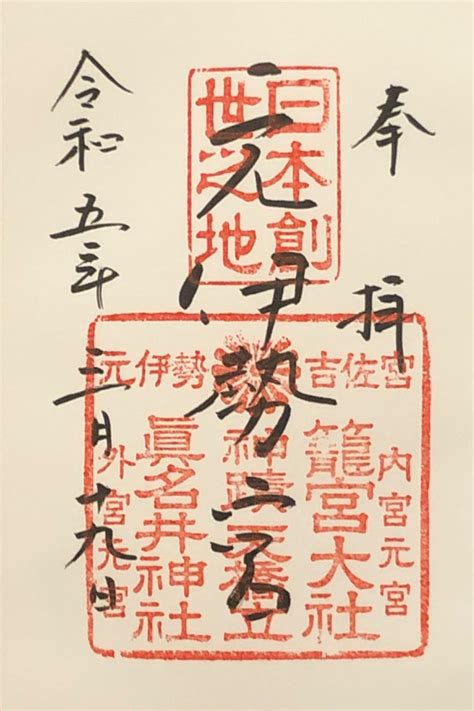 奉拝
日本創
世之地
元伊勢
令和五年
三月十九日
元伊勢
吉佐宮
内宮元宮
籠宮大社
神蹟天橋立
眞名井神社
外宮元宮